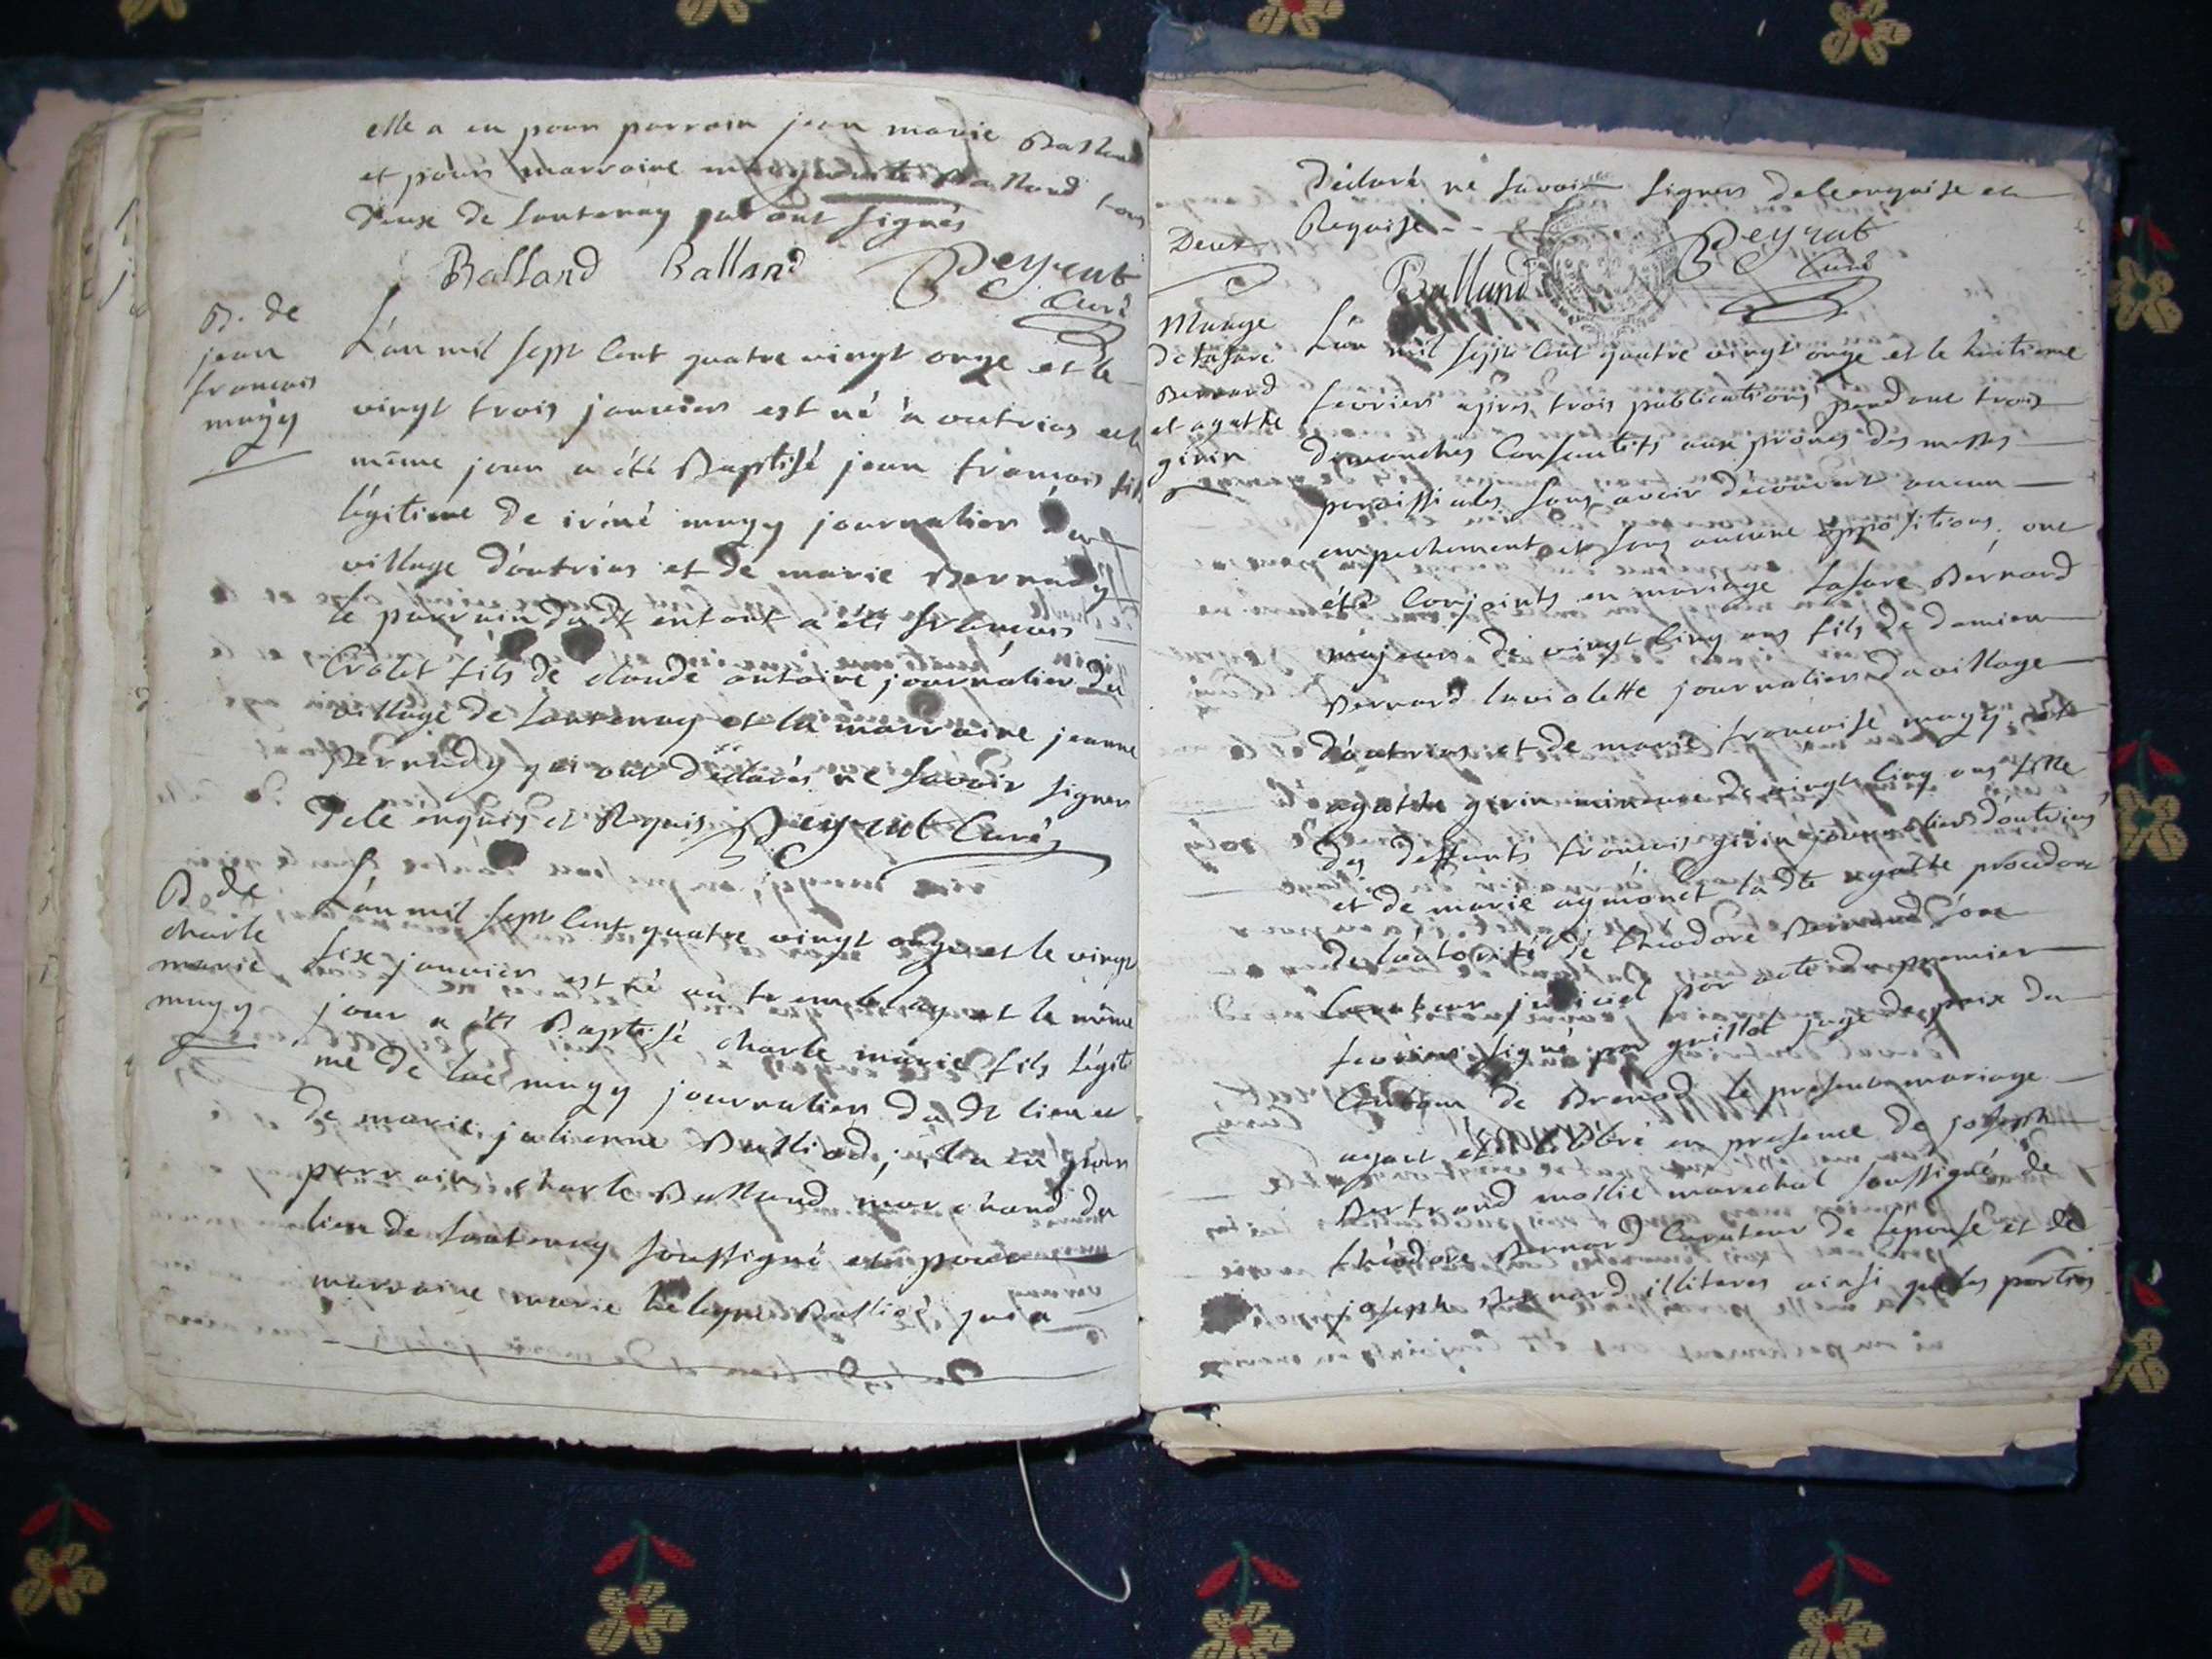 elle a eu pour parrain jean marie Balland
et pour marraine Balland tous
deux de lantenay qui ont signés
Balland Balland Peyrat
Curé
B. de
jean
francois
mugy
L'an mil sept cent quatre vingt onze et le
vingt trois janvier est né a outrias et le
même jour a été Baptisé jean francois fils
légitime de iréné mugy journalier du
village d'outrias et de marie Bernady
le parrain dudt enfant a été francois
Crolet fils de claude antoine journalier du
village de lantenay et la marraine jeanne
Bernady qui ont déclarés ne savoir signer
de ce enquis et Requis Peyrat Curé
B. de
charle
marie
mugy
L'an mil sept cent quatre vingt onze et le vingt
six janvier est né au tremblay et le même
jour a été Baptisé charle marie fils légiti
me de luc mugy journalier dudt lieu et
de marie julienne Balliod; il a eu pour
parrain charle Balland marchand du
lieu de lantenay soussigné et pour
marraine marie Balliod qui a
déclaré ne savoir signer de ce enquise et
Requise - - -
Deux
Balland Peyrat
Curé
Mariage
de lasare
Bernard
et agathe
girin
L'an mil sept cent quatre vingt onze et le huitieme
fevrier apres trois publications pendant trois
dimanches Consecutifs aux prônes des messes
paroissiales sans avoir découvert aucun
empechement et sans aucune oppositions, ont
été Conjoints en mariage lasare Bernard
majeur de vingt cinq ans fils de damien
Bernard laviolette journalier du village
d'outrias et de marie francoise mugy et
agathe girin mineure de vingt cinq ans fille
des deffunts francois girin journalier d'outrias
et de marie aymonet ladte agathe procedant
de l'autorité de théodore Bernard son
Curateur judiciel par acte du premier
fevrier signé par guillot juge de paix du
Canton de Brenod le présent mariage
ayant été Célébré en presence de joseph
Bertrand mollie marechal soussigné, de
théodore Bernard Curateur de l'épouse et de
joseph Bernard illiteres ainsi que les parties